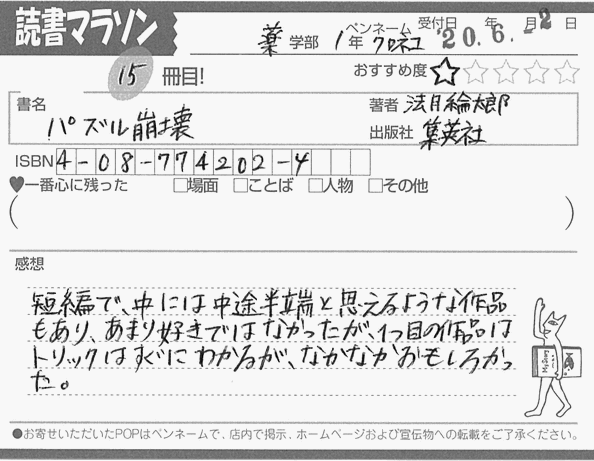 読書マラソン
薬学部 1年 ペンネーム クロネコ 受付日 年 月 日
'20.6.-2
15冊目! おすすめ度☆☆☆☆☆
書名
パズル崩壊
著者 法月綸太郎
出版社 集英社
ISBN 4-08-774202-4
♥一番心に残った □場面 □ことば □人物 □その他
( )
感想
短編で、中には中途半端と思えるような作品
もあり、あまり好きではなかったが、1つ目の作品は
トリックはすぐにわかるが、なかなかおもしろかっ
た。
●お寄せいただいたPOPはペンネームで、店内で掲示、ホームページおよび宣伝物への転載をご了承ください。